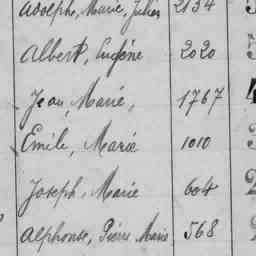 Adolphe, Marie, Julien 2134
Albert, Eugène 2020
Jean, Marie, 1767
Emile, Marie 1010
Joseph, Marie 604
Alphonse, Pierre Marie 568